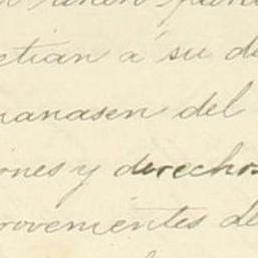 etian á su de
manasen del
ones y derechos
rovenientes de